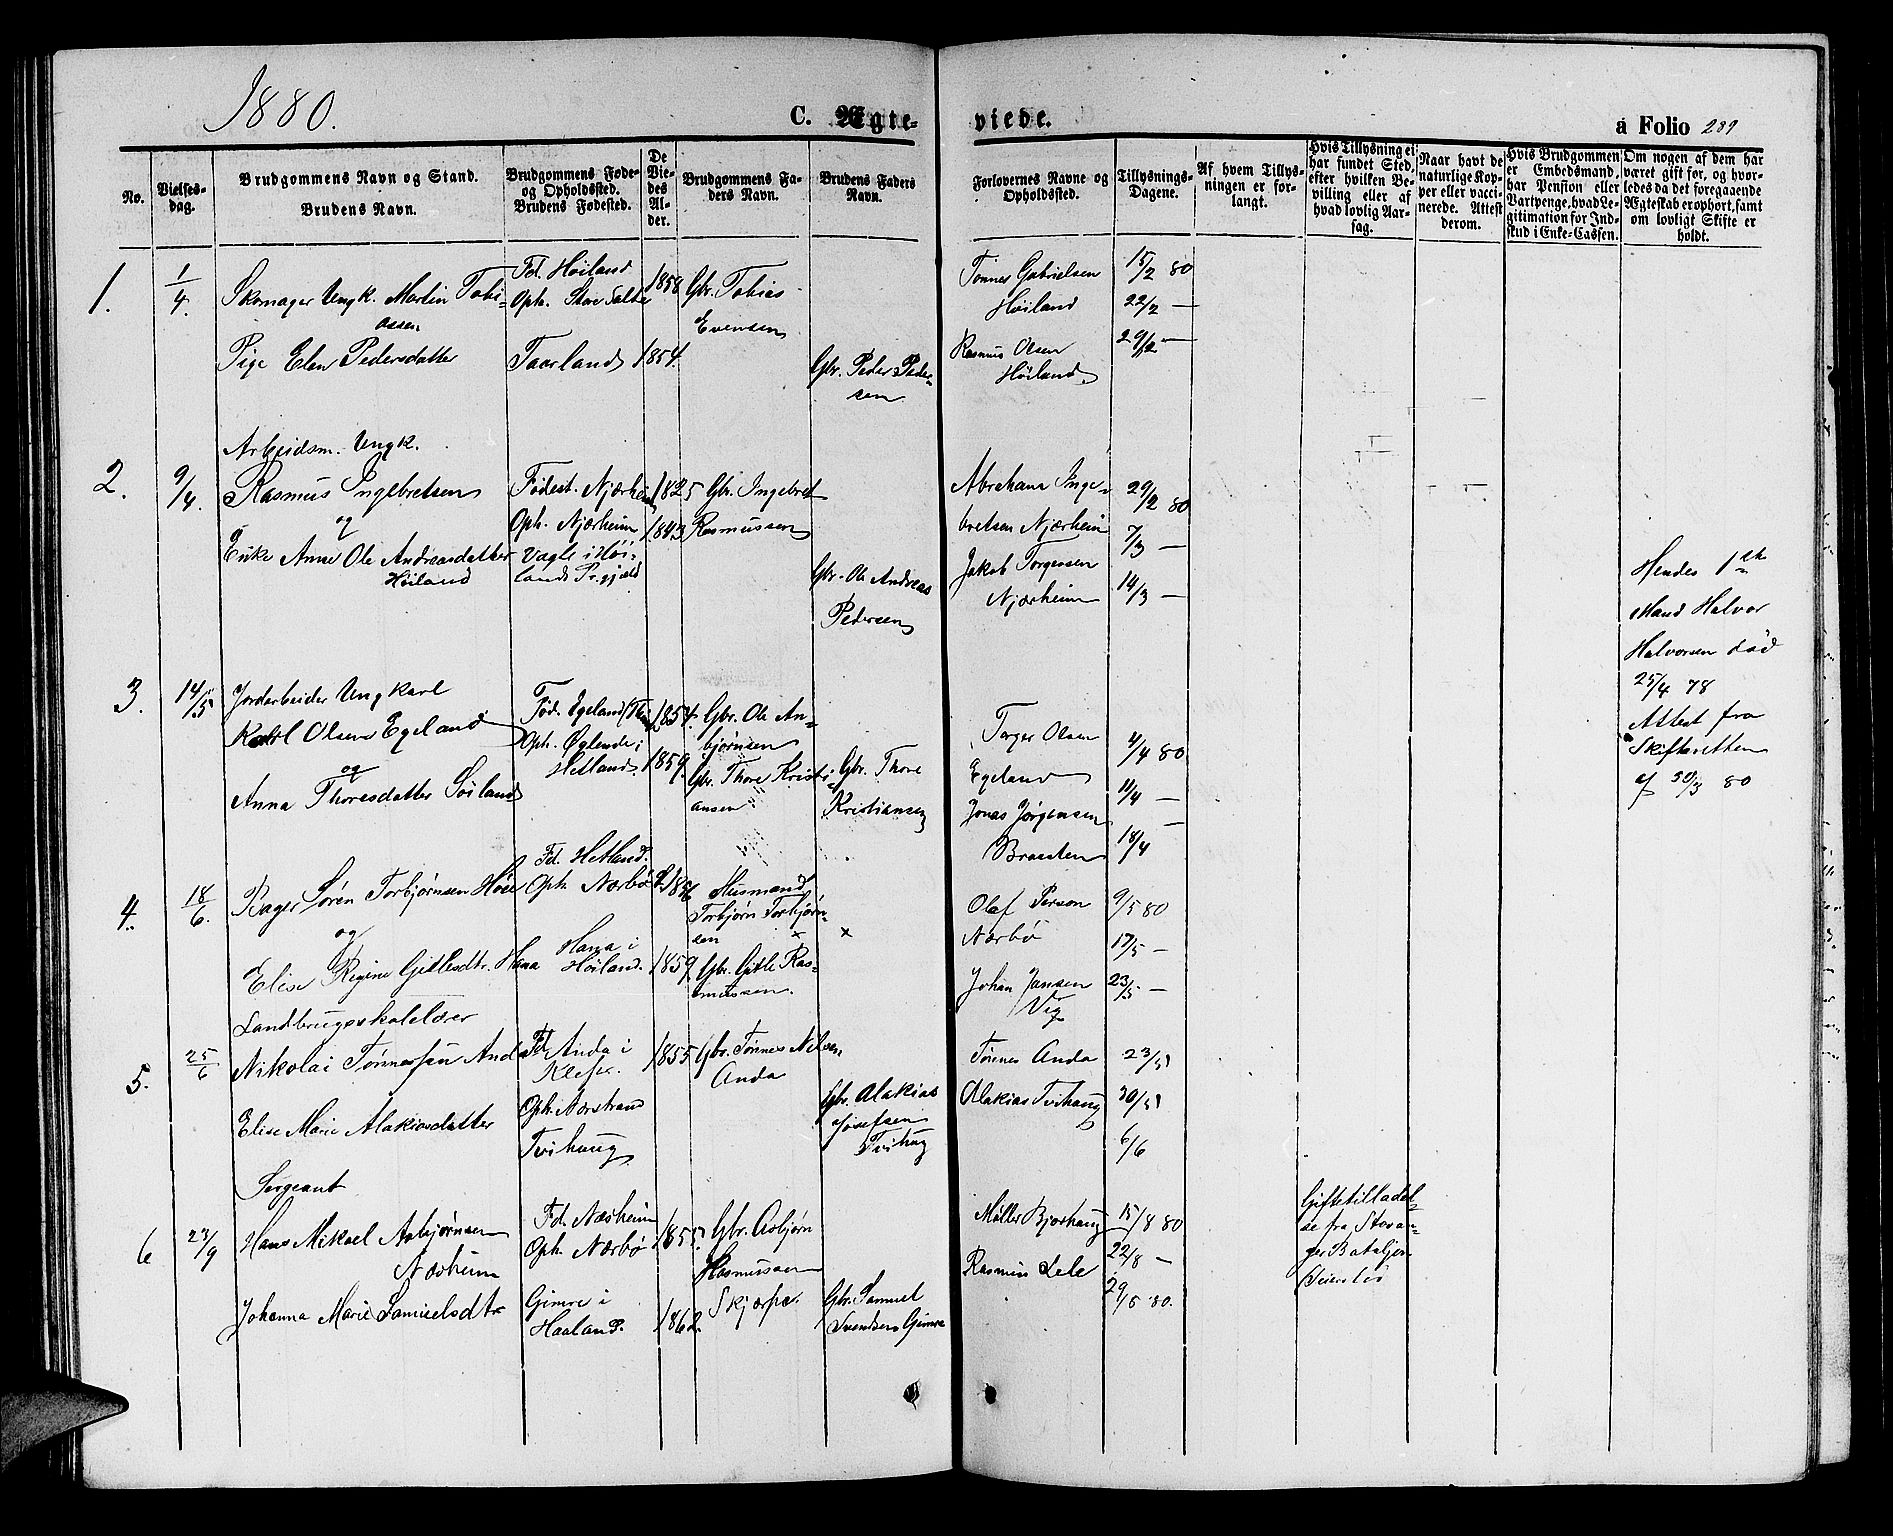 1880.
C. Ægte-
viede.
a Folio 289
No.
Vielses-
dag.
Brudgommens Navn og Stand.
Brudens Navn.
Brudgommens Føde-
og Opholdssted.
Brudens Fødested.
De
Vie-
des
Al-
der.
Brudgommens Fa-
ders Navn.
Brudens Faders
Navn.
Forlovernes Navne og
Opholdssted.
Tillysnings-
Dagene.
Af hvem Tillys-
ningen er for-
langt.
Hvis Tillysning ei
har fundet Sted,
efter hvilken Be-
villing eller af
hvad lovlig Aar-
sag.
Naar havt de
naturlige Kop-
per eller vacci-
nerede. Attest
derom.
Hvis Brudgommen
er Embedsmand,
har Pension eller
Vartpenge, hvad Le-
gitimation for Ind-
skud i Enke-Cassen.
Om nogen af dem har
været gift før, og hvor-
ledes da det foregaaende
Ægteskab er ophørt, samt
om lovligt Skifte er
holdt.
1.
1/4.
Skomager Ungk. Martin Tobi-
assen
Pige Elen Pedersdatter
Fd. Høiland
Oph. Store
Taarland
1858
1854.
Gbr. Tobias
Evensen
Gbr. Peder Peder-
sen.
Tønnes Gabrielsen
Høiland
Rasmus Olsen
Høiland.
15/2 80
22/2 —
29/2 —
2.
9/4.
Arbeidsm. Ungk.
Rasmus Ingebretsen
og
Enke Anne Ole Andreasdatter
Høiland
Fødest. Njærheim
Oph. Njærheim
Vagle i Høi-
lands Pr.gjeld
1825
1843
Gbr. Ingebret
Rasmussen
Gbr. Ole Andreas
Pedersen
Abraham Inge-
bretsen Njærheim
Jakob Torgersen
Njærheim
29/2 80
7/3 —
14/3 —
Hendes 1ste
Mand Halvor
Halvorsen død
25/4 78
Attest fra
Skifteretten
af 30/3 80
3.
14/5
Jordarbeider Ungkarl
Karl Olsen Egeland
og
Anna Thoresdatter Søiland
Fød. Egeland
Oph. Øglende i
Hetland.
1854.
1859.
Gbr. Ole An-
bjørnsen
Gbr. Thore Kristi-
ansen
Gbr. Thore
Kristiansen
Torger Olsen
Egeland
Jonas Jørgensen
Braaten
4/4 80
11/4 —
18/4 —
4.
18/6.
Bager Søren Torbjørnsen
og
Elise Regine Gitlesdtr. Hana
Fd. Hetland.
Oph. Nærbø
Hana i
Høiland.
1856
1859
Husmand
Torbjørn Torbjørn-
sen x
x
Gbr. Gitle Ras-
mussen.
Olaf Person
Nærbø
Johan Jansen
Vig
9/5 80
17/5 —
23/5 —
5.
25/6
Landbrugsskolelærer
Nikolai Tønnessen Anda
Elise Marie Alakiasdatter
Fd. Anda i
Klepp.
Oph. Nærstrand
Tvihaug
1855
Gbr. Tønnes Nilsen
Anda
Gbr. Alakias
Josefsen
Tvihaug
Tønnes Anda
Alakias Tvihaug
23/5
30/5
6/6
6
23/9
Sergeant
Hans Mikael Asbjørnsen
Næsheim
Johanna Marie Samuelsdtr
Fd. Næsheim
Oph. Nærbø
Gimre i
Haaland.
1855.
1862.
Gbr. Asbjørn
Rasmussen
Skjærpe.
Gbr. Samuel
Svendsen Gimre
Møller Bjorhaug
Rasmus Lele
15/8 80
22/8 —
29/8 80.
Giftetilladel-
se fra Stavan-
ger Bataljon